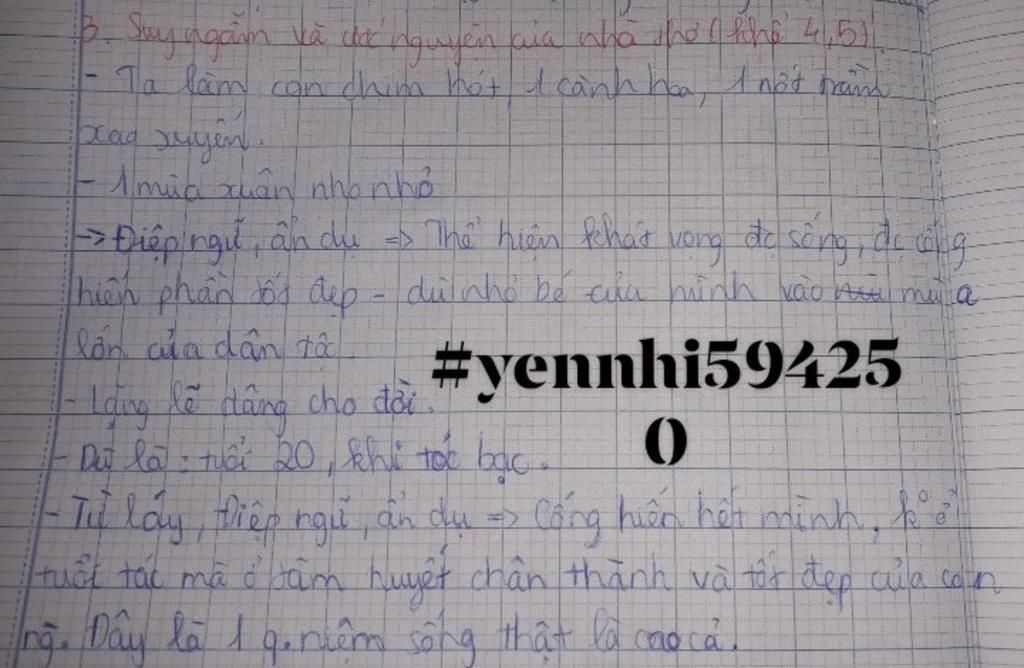 3. Suy ngẫm và ước nguyện của nhà thơ (khổ 4,5)
- Ta làm con chim hót, 1 cành hoa, 1 nốt trầm
xao xuyến.
- 1 mùa xuân nho nhỏ
-> Điệp ngữ, ẩn dụ => Thể hiện khát vọng đc sống, đc cống
hiến phần tốt đẹp - dù nhỏ bé của mình vào mùa
lớn của dân tộc.
#yennhi59425
- Lặng lẽ dâng cho đời.
0
- Dù là: tuổi 20, khi tóc bạc.
- Từ láy, Điệp ngữ, ẩn dụ => Cống hiến hết mình, ko ở
tuổi tác mà ở tâm huyết chân thành và tốt đẹp của con
ng. Đây là 1 q.niệm sống thật là cao cả.